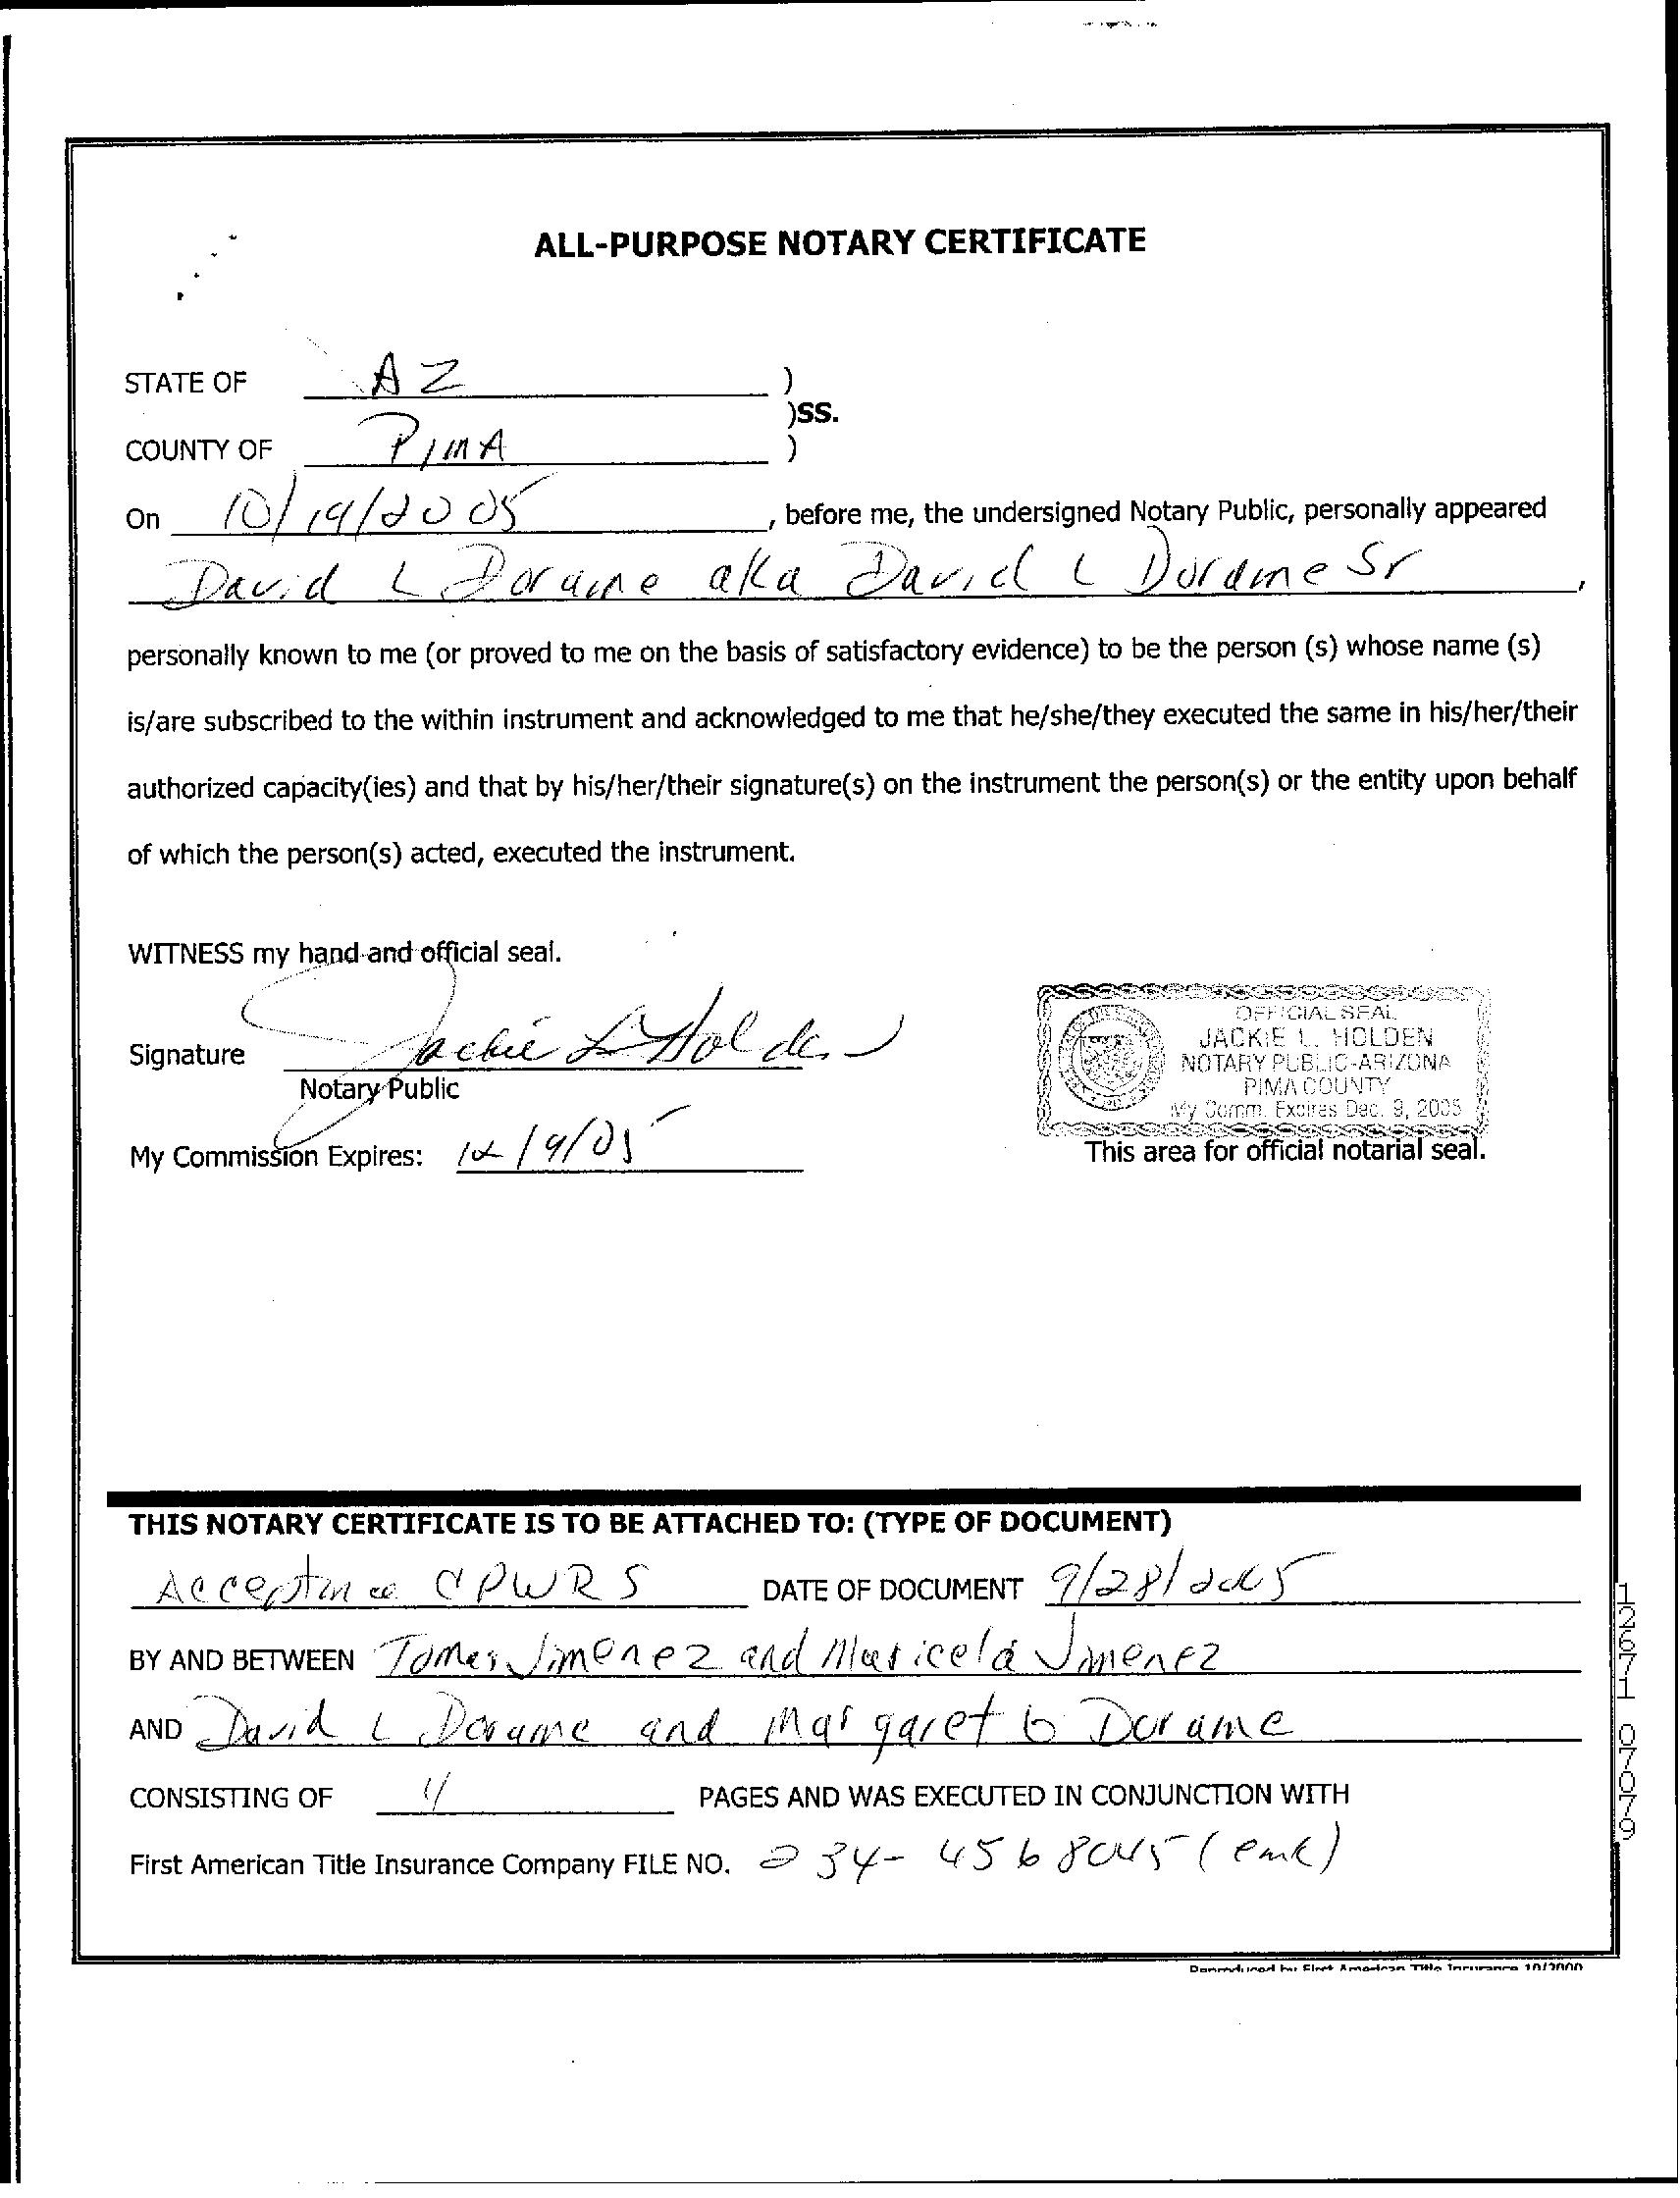 ALL-PURPOSE NOTARY CERTIFICATE
STATE OF AZ )
)SS.
COUNTY OF PIMA )
On 10/19/2005, before me, the undersigned Notary Public, personally appeared
David L Dorame aka David L Dorame Sr,
personally known to me (or proved to me on the basis of satisfactory evidence) to be the person (s) whose name (s)
is/are subscribed to the within instrument and acknowledged to me that he/she/they executed the same in his/her/their
authorized capacity(ies) and that by his/her/their signature(s) on the instrument the person(s) or the entity upon behalf
of which the person(s) acted, executed the instrument.
WITNESS my hand and official seal.
Signature Jackie L Holden
Notary Public
My Commission Expires: 12/9/05
OFFICIAL SEAL
JACKIE L. HOLDEN
NOTARY PUBLIC-ARIZONA
PIMA COUNTY
My Comm. Expires Dec. 9, 2005
This area for official notarial seal.
THIS NOTARY CERTIFICATE IS TO BE ATTACHED TO: (TYPE OF DOCUMENT)
Acceptance CPWRS DATE OF DOCUMENT 9/28/2005
BY AND BETWEEN Tomas Jimenez and Maricela Jimenez
AND David L Dorame and Margaret G Dorame
CONSISTING OF 4 PAGES AND WAS EXECUTED IN CONJUNCTION WITH
First American Title Insurance Company FILE NO. 234-4568045 (emk)
Reproduced by First American Title Insurance 10/2000
12671 07079